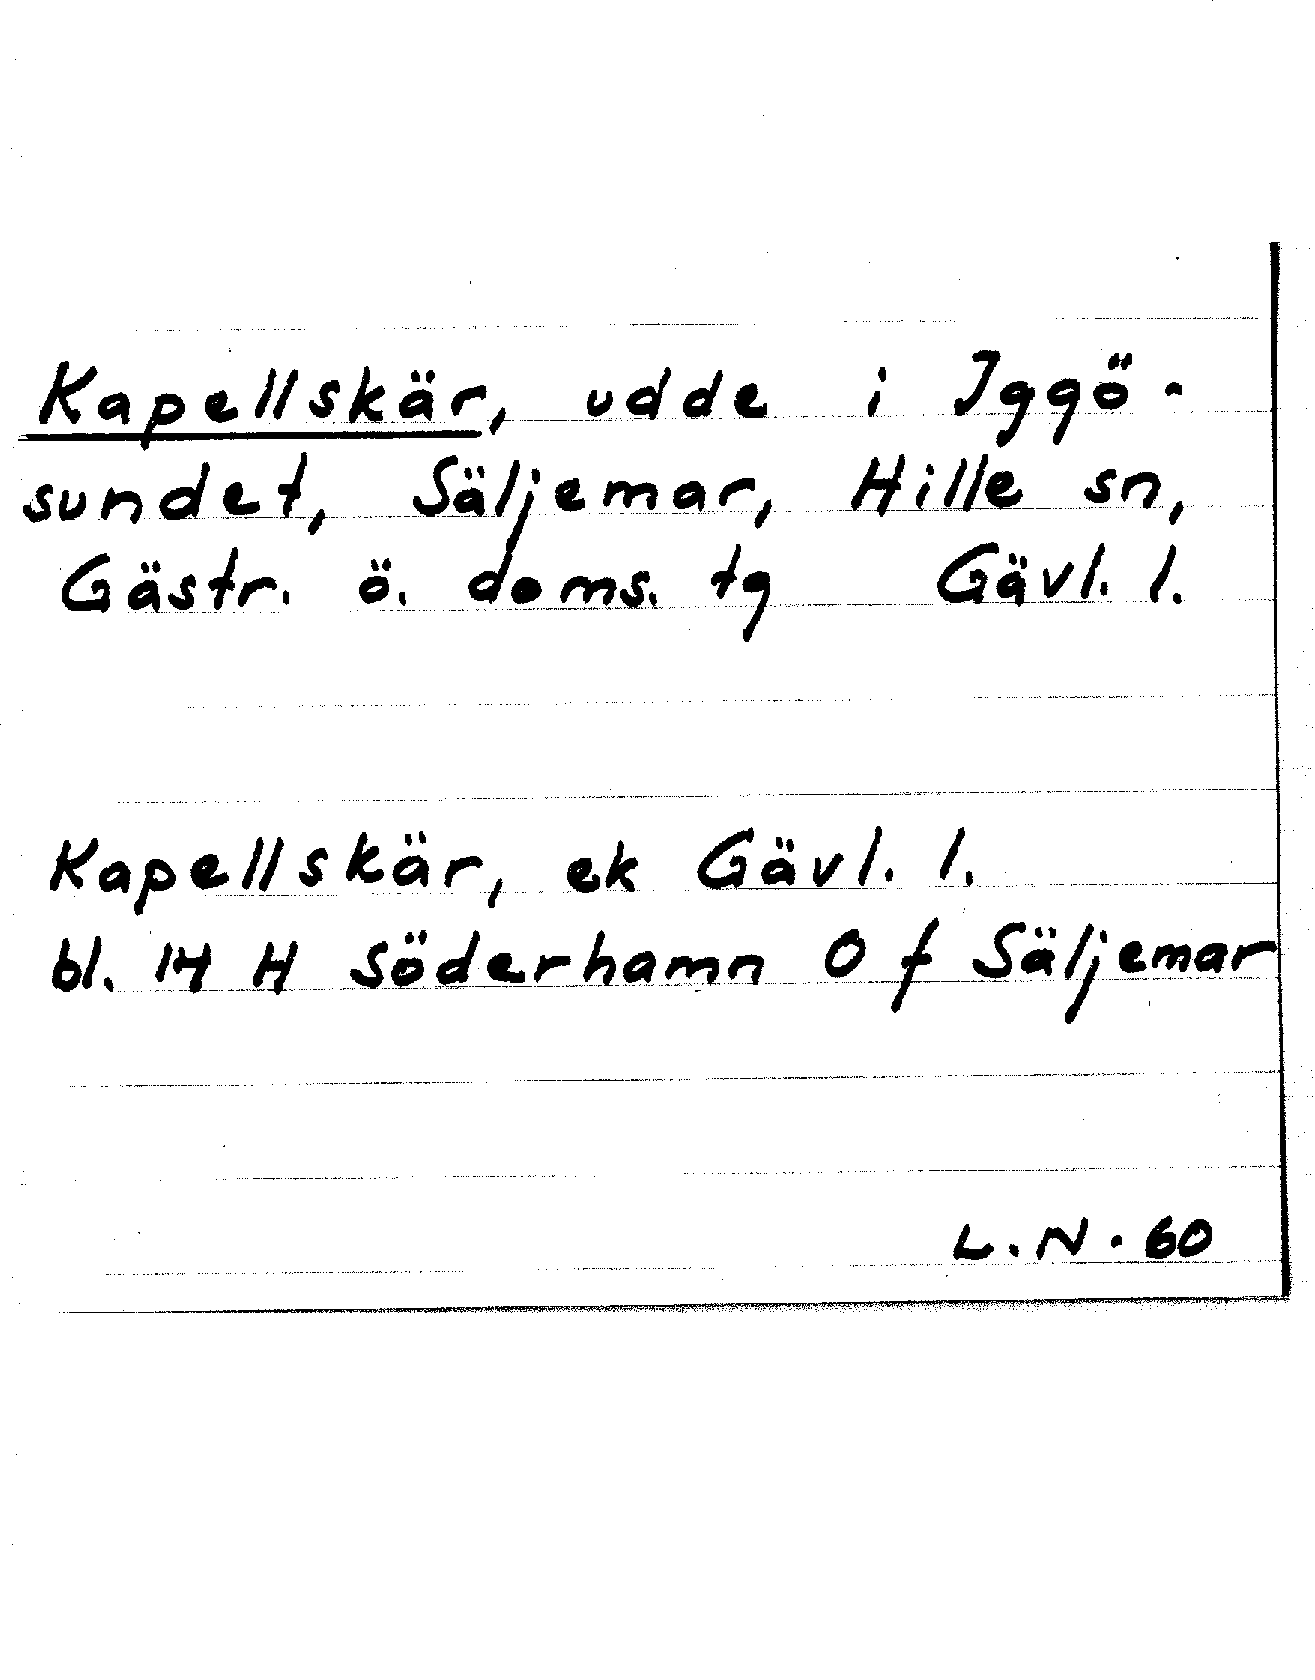 Kapellskär, udde i Iggö-
sundet, Säljemar, Hille sn,
Gästr. ö. doms. tg Gävl. l.
Kapellskär, ek Gävl. l.
bl. 14 H Söderhamn O f Säljemar
L.N.60